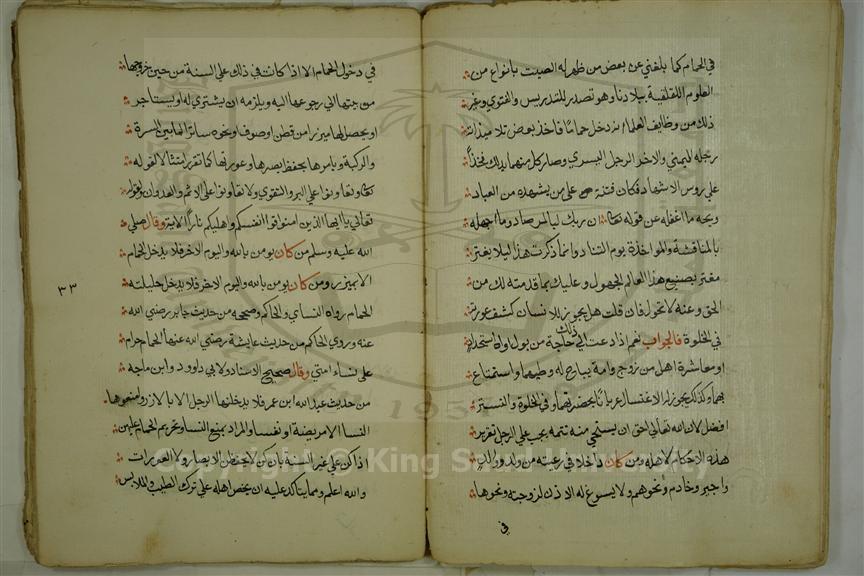 في الحمام كما بلغني عن بعض من ظهر له الصيت بانواع من
العلوم ببلادنا وهو تصدر للتدريس والفتوي وغير
ذلك من وظايف العلماء انه دخل حماما فاخذ بعض تلامذاته
رجله اليمني والاخر الرجل اليسري وصار كل منهما يدلك فخذا
علي روس الاشهاد فكان فتنة علي من يشهده من العباد
ويحه ما اغفله عن قوله تعالى ان ربك لبالمرصاد وما اجهله
بالمناقشة والمواخذة يوم التناد وانما ذكرت هذا ليلا يغتر
مغتر بصنيع هذا العالم الجهول وعليك بما قدمته لك من
الحق وعنه لا تحول فان قلت هل يجوز للانسان كشف عورته
في الخلوة فالجواب نعم اذا دعت الي ذلك حاجة من بول او استحداد
او معاشرة اهل من زوج وامة يباح له وطيهما واستمتاع
بهما وكذلك يجوز له الاغتسال عريانا بحضرتهما وفي الخلوة والتستر
افضل لان الله تعالي احق ان يستحيي منه تتمه يجب علي الرجل تقرير
هذه الاحكام لاهله ومن كان داخلا في رعيته من ولد
واجير وخادم ونحوهم ولا يسوغ له الاذن لزوجته ونحوها
في
في دخول الحمام الا اذا كانت في ذلك علي السنة من حين خروجها
من بيتها الي رجوعها اليه ويلزمه ان يشتري له او يستاجر
او يحصل لها ميزرا من قطن او صوف ونحوه ساترا لما بين السرة
والركبة ويامرها بحفظ بصرها وعورتها كما تقرر امتثالا لقوله
تعالى وتعاونوا علي البر والتقوي ولا تعاونوا علي الاثم والعدوان ولقوله
تعالي يا ايها الذين امنوا قوا انفسكم واهليكم نارا الاية وقال صلي
الله عليه وسلم من كان يومن بالله واليوم الاخر فلا يدخل الحمام
الا بميزر ومن كان يومن بالله واليوم الاخر فلا يدخل حليلته
الحمام رواه النسائي والحاكم وصححه من حديث جابر رضي الله
عنه وروي الحاكم من حديث عايشة رضي الله عنها الحمام حرام
علي نساء امتي وقال صحيح الاسناد ولابي داوود وابن ماجه
من حديث عبد الله ابن عمر فلا يدخلنها الرجال الا بالازر وامنعوها
النسا الا مريضة او نفسا والمراد بمنع النسا وتحريم الحمام عليهن
اذا كن علي غير السنة بان كن لا يحفظن الابصار ولا العورات
والله اعلم ومما يتاكد عليه ان يحض اهله علي ترك الطيب والملابس
٣٣
Copyright © King Saud University
1957